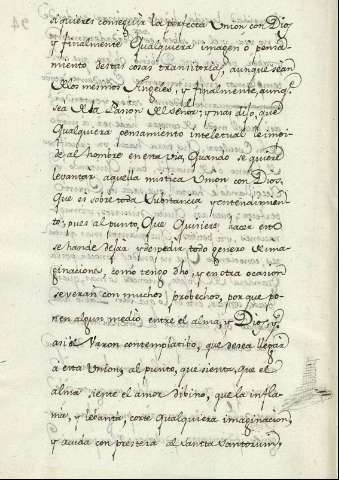 si quieres conseguir la perfecta Union con Dios
y finalmente Qualquiera imagen o pensa-
miento destas cosas transitorias, aunque sean
Los mesmos Angeles, y finalmente, aunq.
sea de la Passion del Señor, y mas digo, que
qualquiera pensamiento intelectual le impi-
de al hombre en esta via, Quando se quiere
levantar aquella mistica Union con Dios,
Que es sobre toda substancia y entendimien-
to, pues al punto, Que Quiere hacer esto
se han de dejar y despedir todo genero de ima-
ginaciones, como tengo dho, y en otra ocasion
se veràn con muchos probechos, por que po-
nen algun medio entre el alma, y Dios, y
asi el Varon contemplatibo, que desea llegar
a esta Union, al punto, que sienta, que el
alma siente el amor dibino, que la infla-
ma, y lebanta, corte qualquiera imaginacion,
y acuda con presteza al Sancta Sanctorum,